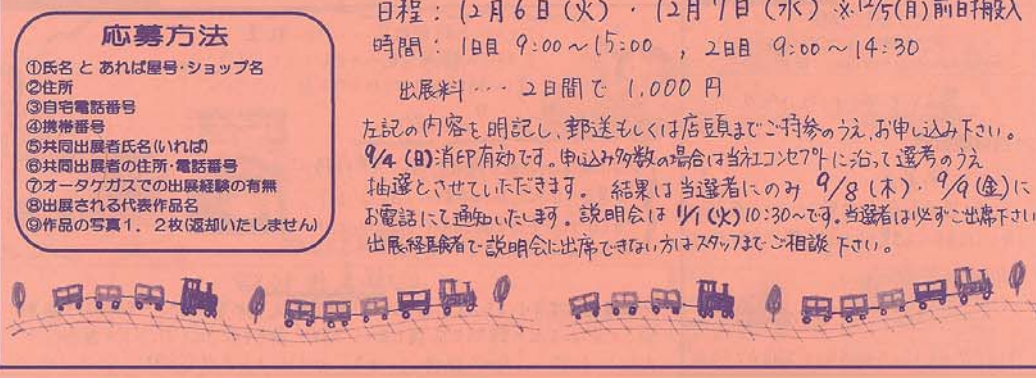 応募方法
①氏名 と あれば屋号・ショップ名
②住所
③自宅電話番号
④携帯番号
⑤共同出展者氏名(いれば)
⑥共同出展者の住所・電話番号
⑦オータケガスでの出展経験の有無
⑧出展される代表作品名
⑨作品の写真1．2枚(返却いたしません)
日程：12月6日(火)・12月7日(水) ※12/5(月)前日搬入
時間：1日目 9:00～15:00 , 2日目 9:00～14:30
出展料・・・2日間で 1,000円
左記の内容を明記し、郵送もしくは店頭までご持参のうえ、お申し込み下さい。
9/4(日)消印有効です。申し込み多数の場合は当社コンセプトに沿って選考のうえ
抽選とさせていただきます。 結果は当選者にのみ 9/8(木)・9/9(金)に
お電話にて通知いたします。説明会は 11/1(火)10:30～です。当選者は必ずご出席下さい
出展経験者で説明会に出席できない方はスタッフまでご相談下さい。